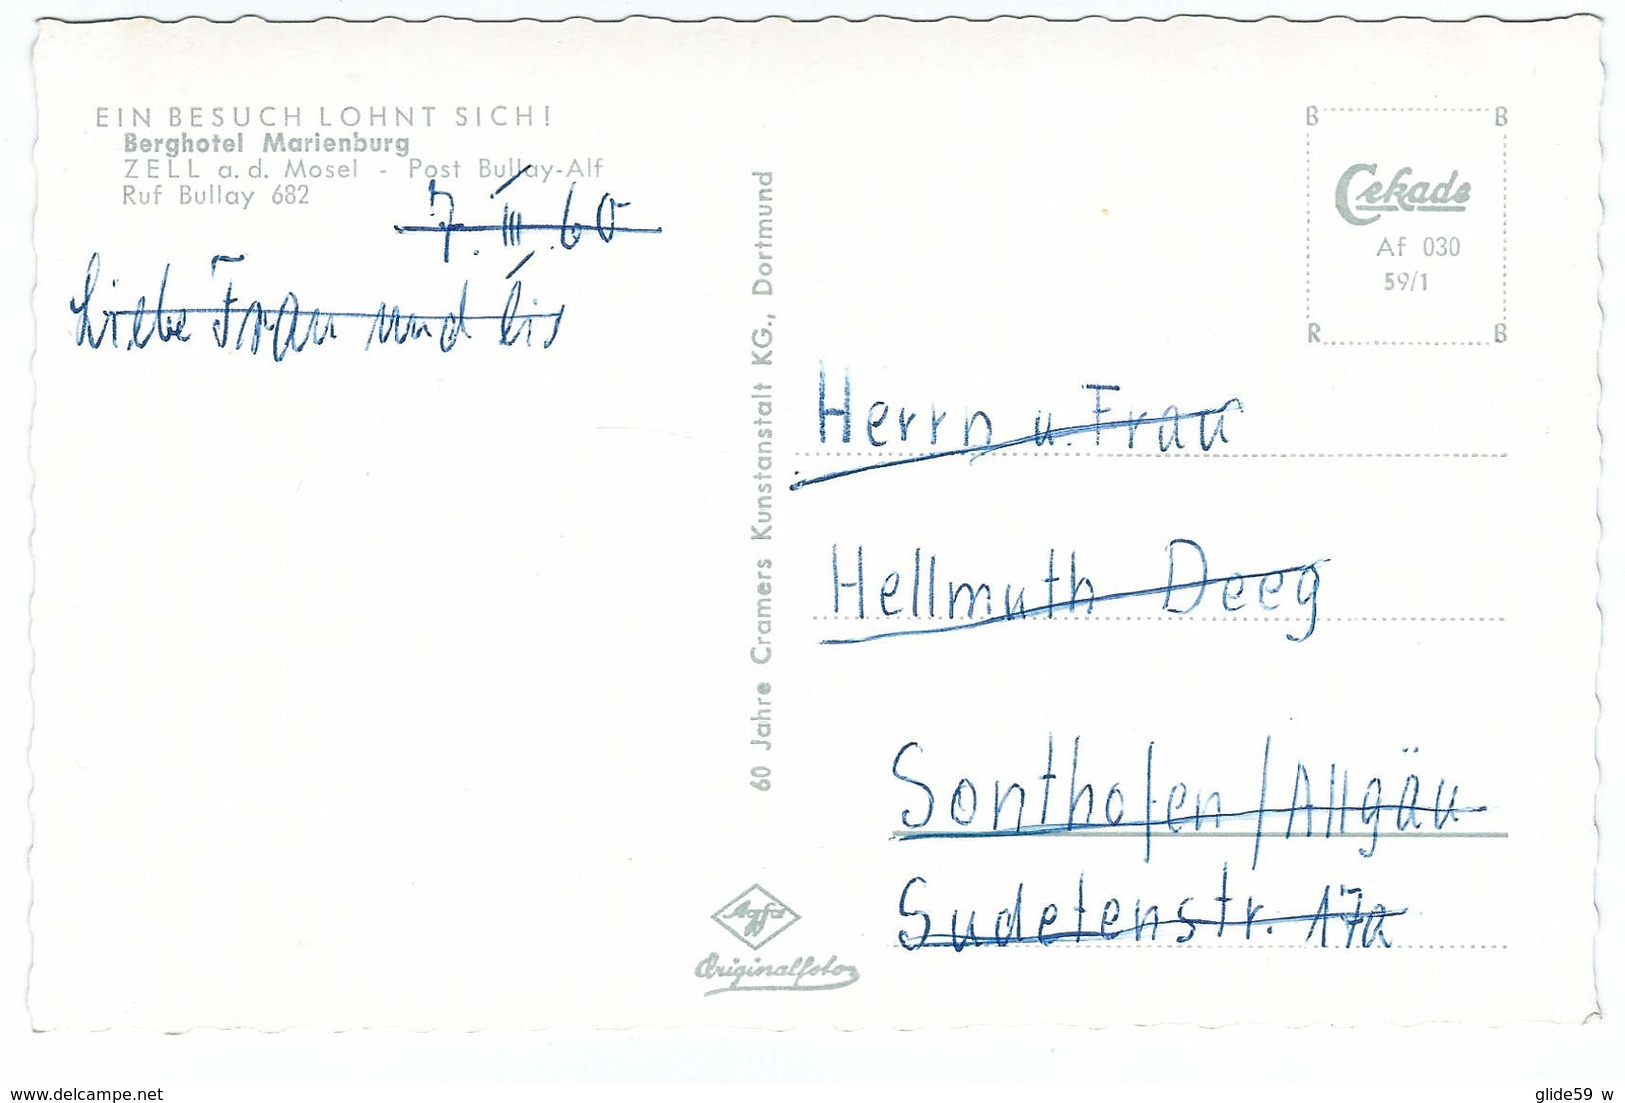 EIN BESUCH LOHNT SICH!
Berghotel Marienburg
ZELL a. d. Mosel - Post Bullay-Alf
Ruf Bullay 682
7. III. 60
Liebe Frau und
60 Jahre Cramers Kunstanstalt KG., Dortmund
B B
Cekade
Af 030
59/1
R B
Herrn u. Frau
Hellmuth Deeg
Sonthofen/Allgäu
Sudetenstr. 17a
Agfa
Originalfoto
www.delcampe.net
glide59 w